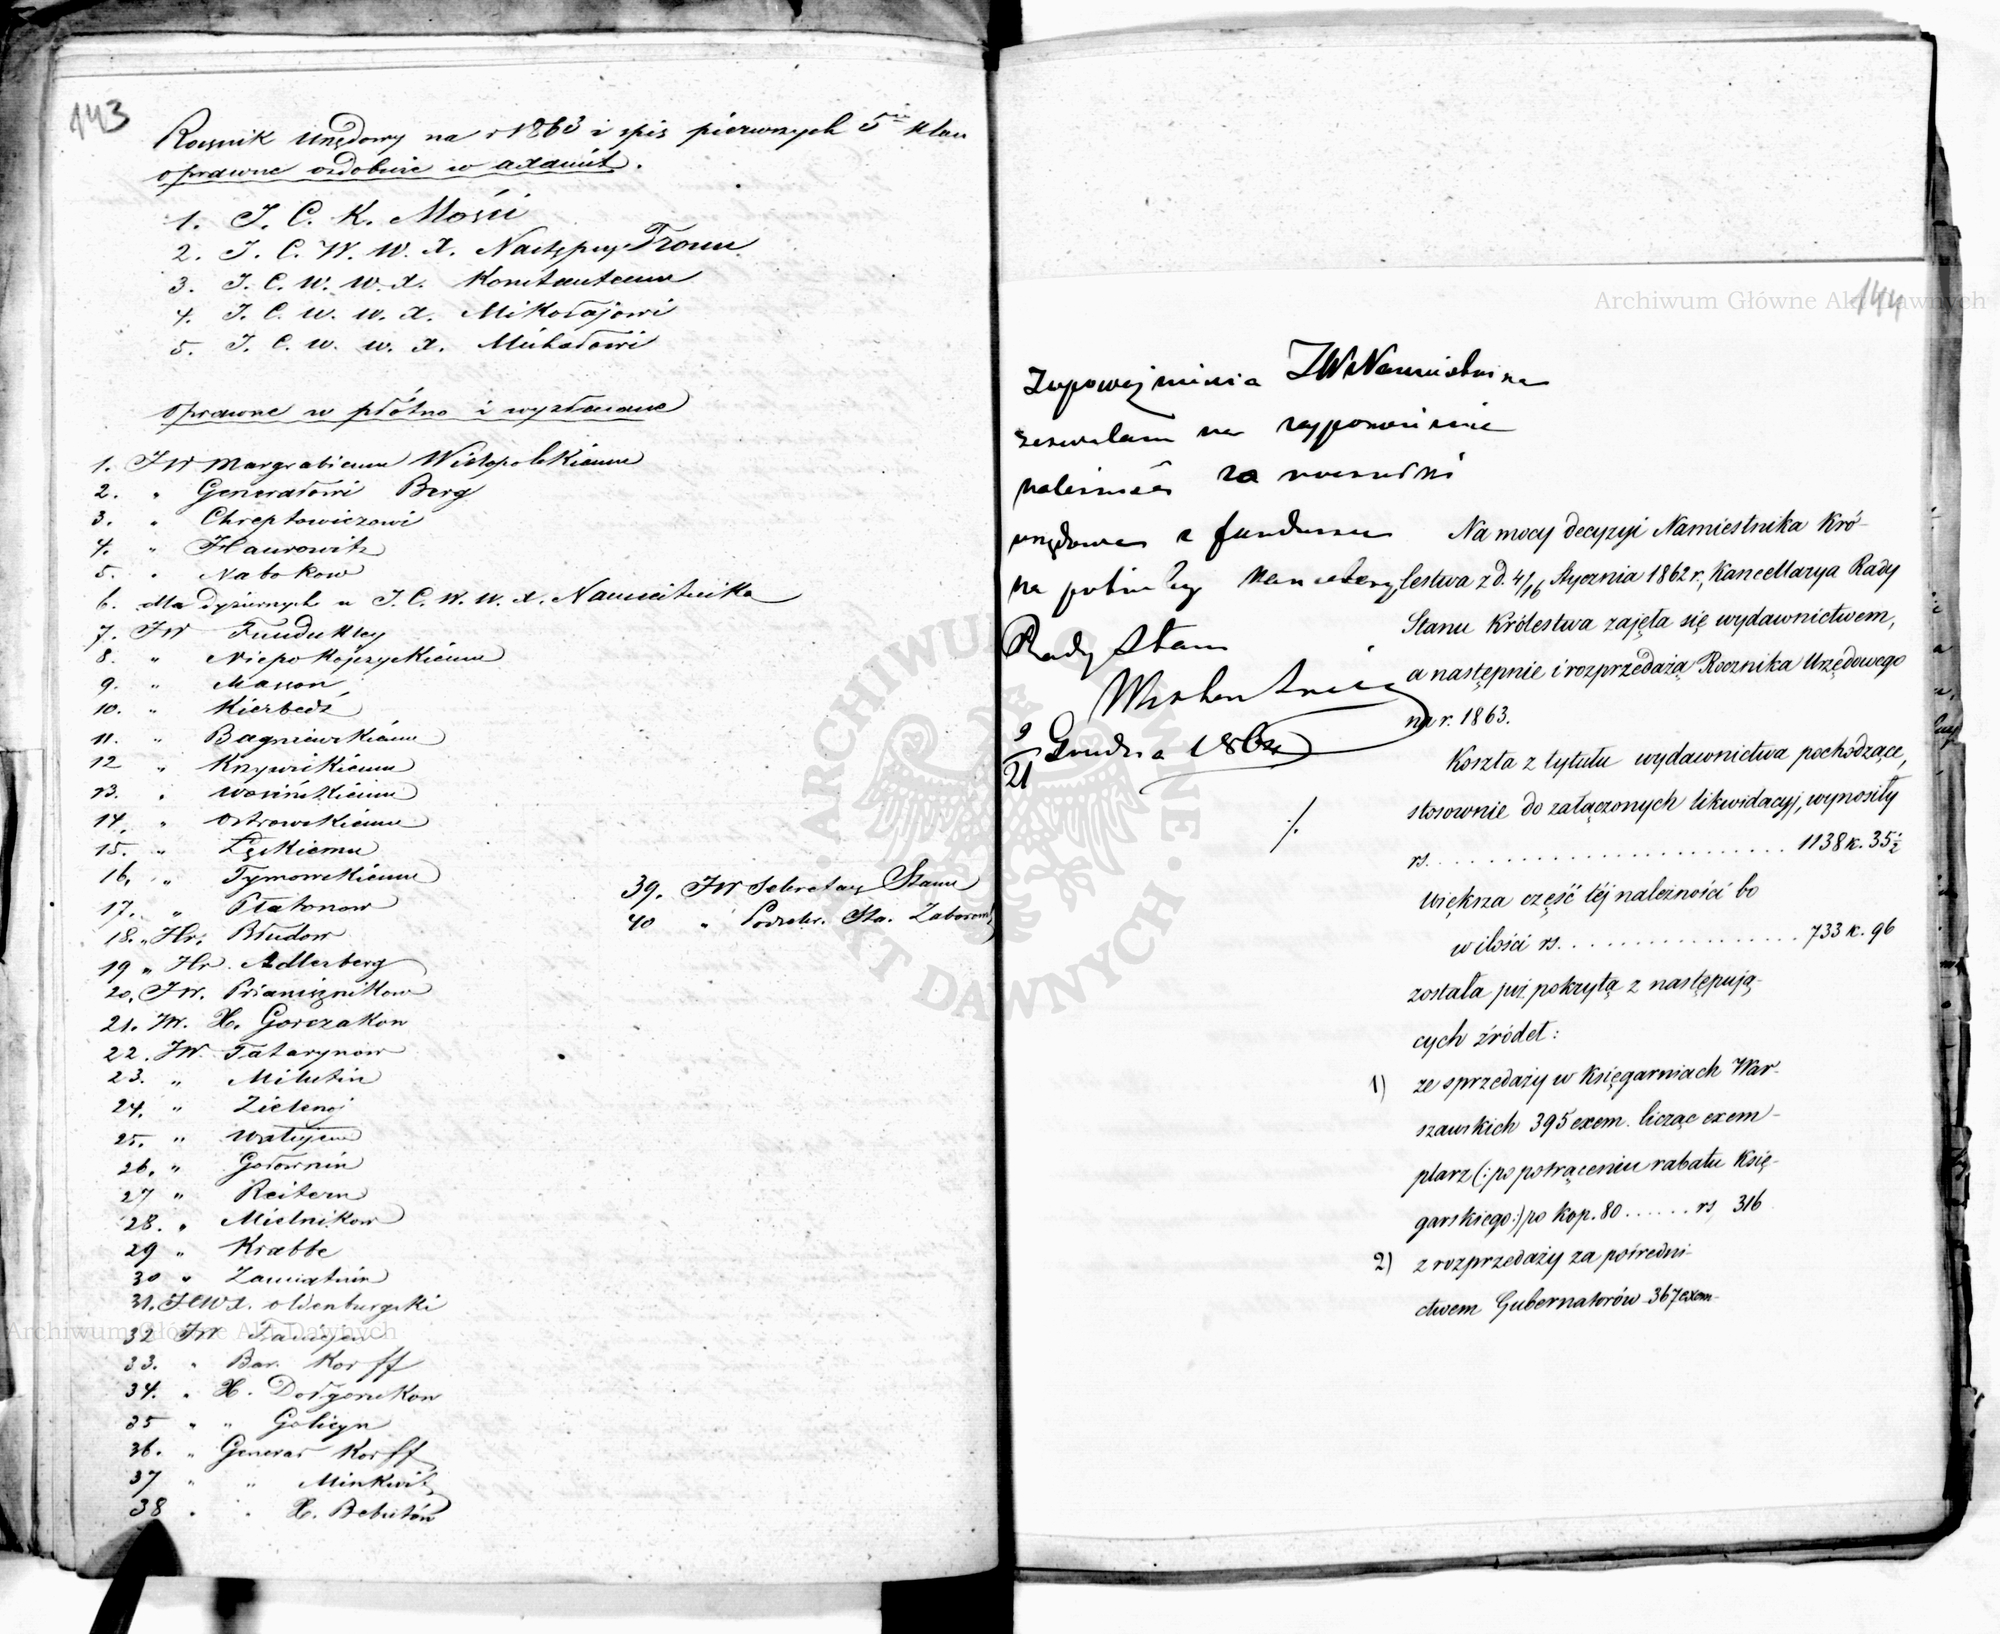 143
Rocznik Urzędowy na r 1863 i spis pierwszych 5ciu klas
oprawne ozdobnie w axamit.
1. J. C. K. Mości
2. J. C. W. W. X. Następcy Tronu
3. J. C. W. W. X. Konstantemu
4. J. C. W. W. X. Mikołajowi
5. J. C. W. W. X. Michałowi
oprawne w płótno i wyzłacane
1. JW Margrabiemu Wielopolskiemu
2. " Generałowi Berg
3. " Chreptowiczowi
4. " Haurowitz
5. " Nabokow
6. dla dyżurnych u J. C. W. W. X. Namiestnika
7. JW Funduklej
8. " Niepokojczyckiemu
9. " Masson
10. " Kierbedź
11. " Bagniewskiemu
12 " Krzywickiemu
13. " Wosińskiemu
14. " Ostrowskiemu
15. " Łęskiemu
16. " Tymowskiemu
17. " Płatonow
18. " Hr. Błudow
19 " Hr. Adlerberg
20. JW. Prianisznikow
21. JW. X. Gorczakow
22. JW. Tatarynow
23. " Milutin
24. " Zielenoj
25. " Wałujew
26. " Gołownin
27 " Reitern
28. " Mielnikow
29 " Krabbe
30 " Zamiatnin
31. JCWX. Oldenburgski
32 JW Paniyn
33. " Bar. Korff
34. " X. Dołgorukow
35 " " Golicyn
36. " Generał Korff
37 " " Minkwitz
38 " " X. Bebutów
39. JW Sekretarz Stanu
40 " Podsekr. Sta. Zaborowski
Archiwum Główne Akt Dawnych
144
Z upoważnienia JW Namiestnika
zezwalam na wyponowienie
należności za roczniki
urzędowe z funduszu
na potrzeby Kancelaryi
Rady Stanu
9/21 Grudnia 1864
./.
Na mocy decyzyi Namiestnika Kró-
lestwa z d. 4/16 Stycznia 1862 r., Kancellarya Rady
Stanu Królestwa zajęła się wydawnictwem,
a następnie i rozprzedażą Rocznika Urzędowego
na r. 1863.
Koszta z tytułu wydawnictwa pochodzące,
stosownie do załączonych likwidacyj, wynosiły
rs. . . . . . . . . . . . . . . . . . . . . . . . 1138 k. 35½
Większa część téj należności bo
w ilości rs. . . . . . . . . . . . . . . . . . 733 k. 96
została już pokrytą z następują-
cych źródeł:
1) ze sprzedaży w księgarniach War-
szawskich 395 exem. licząc exem-
plarz (: po potrąceniu rabatu księ-
garskiego :) po kop. 80 . . . . . . rs, 316
2) z rozprzedaży za pośredni-
ctwem Gubernatorów 367 exem-
Archiwum Główne Akt Dawnych
ARCHIWUM GŁÓWNE AKT DAWNYCH